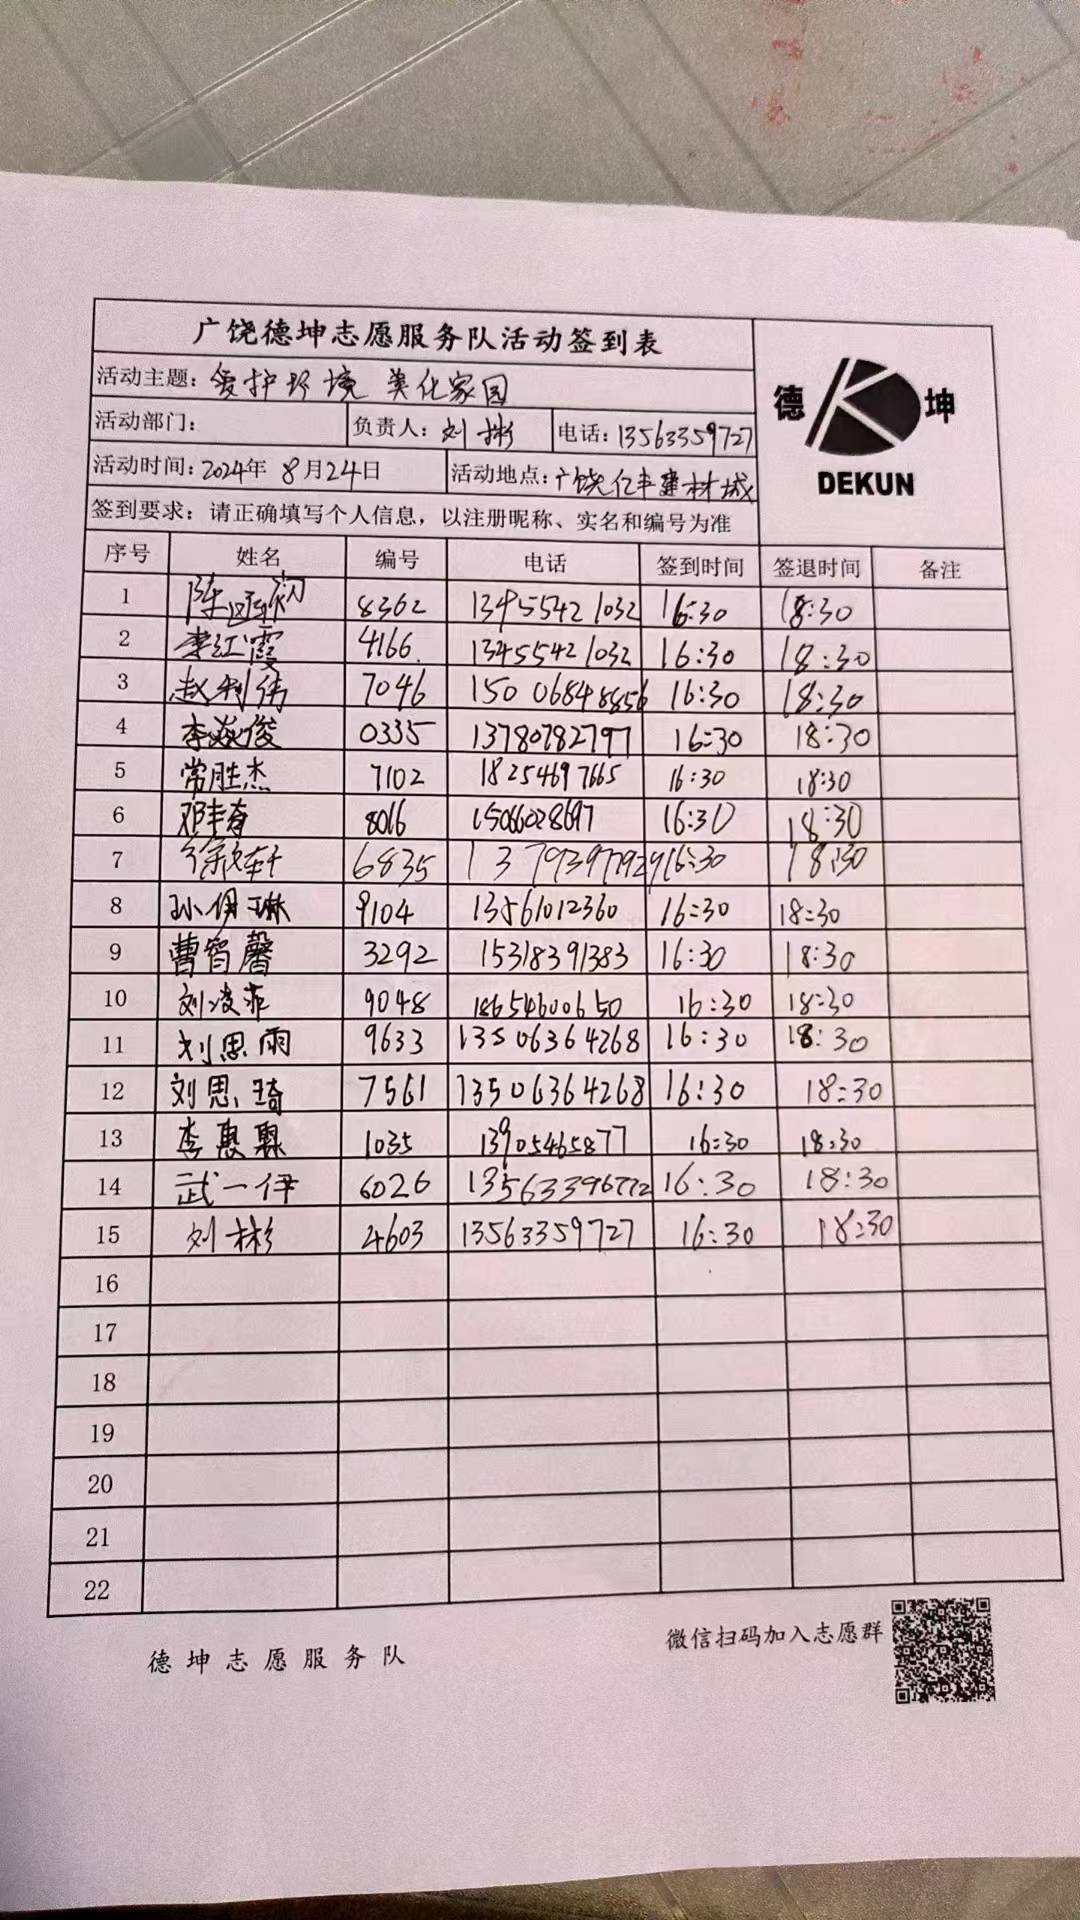 广饶德坤志愿服务队活动签到表
德 坤
DEKUN
活动主题：爱护环境 美化家园
活动部门： 负责人：刘彬 电话：13563359727
活动时间：2024年 8月24日 活动地点：广饶亿丰建材城
签到要求：请正确填写个人信息，以注册昵称、实名和编号为准
序号 姓名 编号 电话 签到时间 签退时间 备注
1 陈 8362 13455421032 16:30 18:30
2 李红霞 4166 13455421032 16:30 18:30
3 赵利伟 7046 15006848856 16:30 18:30
4 李焱俊 0335 13780782797 16:30 18:30
5 常胜杰 7102 18254697665 16:30 18:30
6 邓丰春 8016 15066028697 16:30 18:30
7 徐 6835 13793979929 16:30 18:30
8 孙伊琳 9104 13561012360 16:30 18:30
9 曹智馨 3292 15318391383 16:30 18:30
10 刘凌菲 9048 18654600650 16:30 18:30
11 刘思雨 9633 13506364268 16:30 18:30
12 刘思琦 7561 13506364268 16:30 18:30
13 李惠 1035 13905465877 16:30 18:30
14 武一伊 6026 16:30 18:30
15 刘彬 4603 13563359727 16:30 18:30
16
17
18
19
20
21
22
德坤志愿服务队
微信扫码加入志愿群